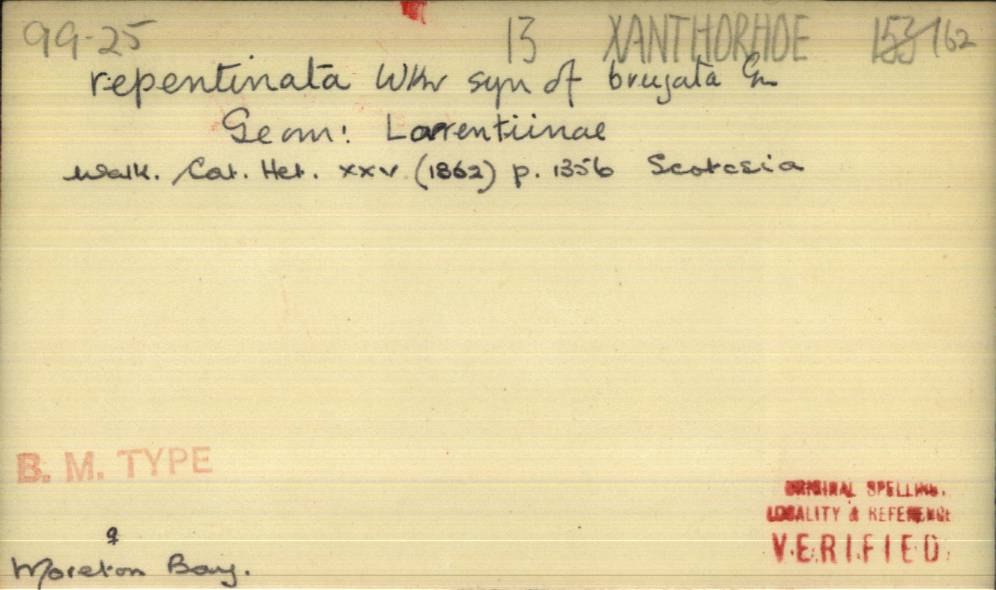 99-25 13 XANTHORHOE 153 162
repentinata Wkr syn of brujata Gn
Geom: Larentiinae
Walk. Cat. Het. xxv (1862) p. 1356 Scotosia
B. M. TYPE
ORIGINAL SPELLING,
LOCALITY & REFERENCE
VERIFIED
♀
Moreton Bay.